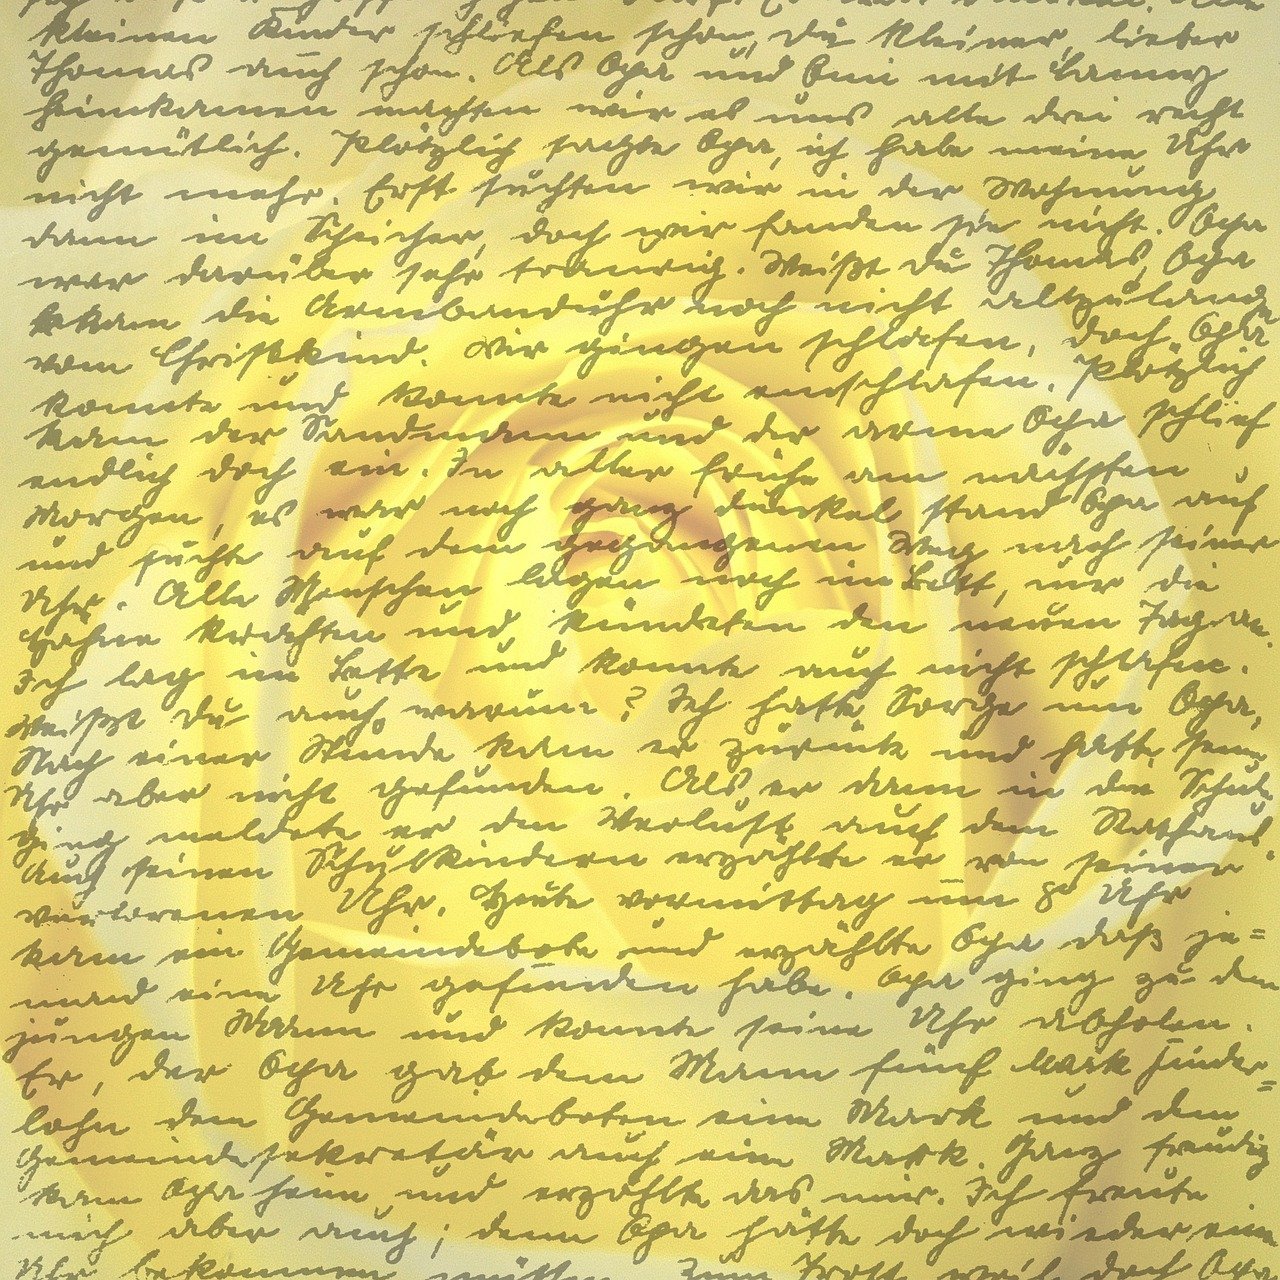 kleinen Kinder schliefen schon, Du kleiner, lieber
Thomas auch schon. Als Opa und Omi mit
heimkamen machten wir es uns alle drei recht
gemütlich. Plötzlich sagte Opa, ich habe meine Uhr
nicht mehr. Erst suchten wir in der Wohnung
dann im Speicher, doch wir fanden sie nicht. Opa
war darüber sehr traurig. Weißt Du Thomas, Opa
bekam die Armbanduhr noch nicht allzulange
vom Christkind. Wir gingen schlafen, doch Opa
konnte und konnte nicht einschlafen. Plötzlich
kam der Sandmann und der arme Opa schlief
endlich doch ein. In aller frühe am nächsten
Morgen, es war noch ganz dunkel stand Opa auf
und suchte auf dem gegangenem Weg nach seiner
Uhr. Alle Menschen lagen noch im Bett, nur die
Hähne krähten und kündeten den neuen Tag an.
Ich lag im Bette und konnte auch nicht schlafen.
Weißt Du auch warum? Ich hatte Sorge um Opa,
Nach einer Stunde kam er zurück und hatte seine
Uhr aber nicht gefunden. Als er dann in die Schule
ging meldete er den Verlust auf dem Rathaus.
Auch seinen Schulkindern erzählte er von seiner
verlorenen Uhr. Heute vormittag um 8 Uhr
kam ein Gemeindebote und erzählte Opa daß je=
mand eine Uhr gefunden habe. Opa ging zu dem
jungen Mann und konnte seine Uhr abholen.
Er, der Opa gab dem Mann fünf Mark Finder=
lohn dem Gemeindeboten eine Mark und dem
Gemeindesekretär auch eine Mark. Ganz freudig
kam Opa heim und erzählte das mir. Ich freute
mich aber auch; denn Opa hätte doch wieder eine
Uhr bekommen müssen zum